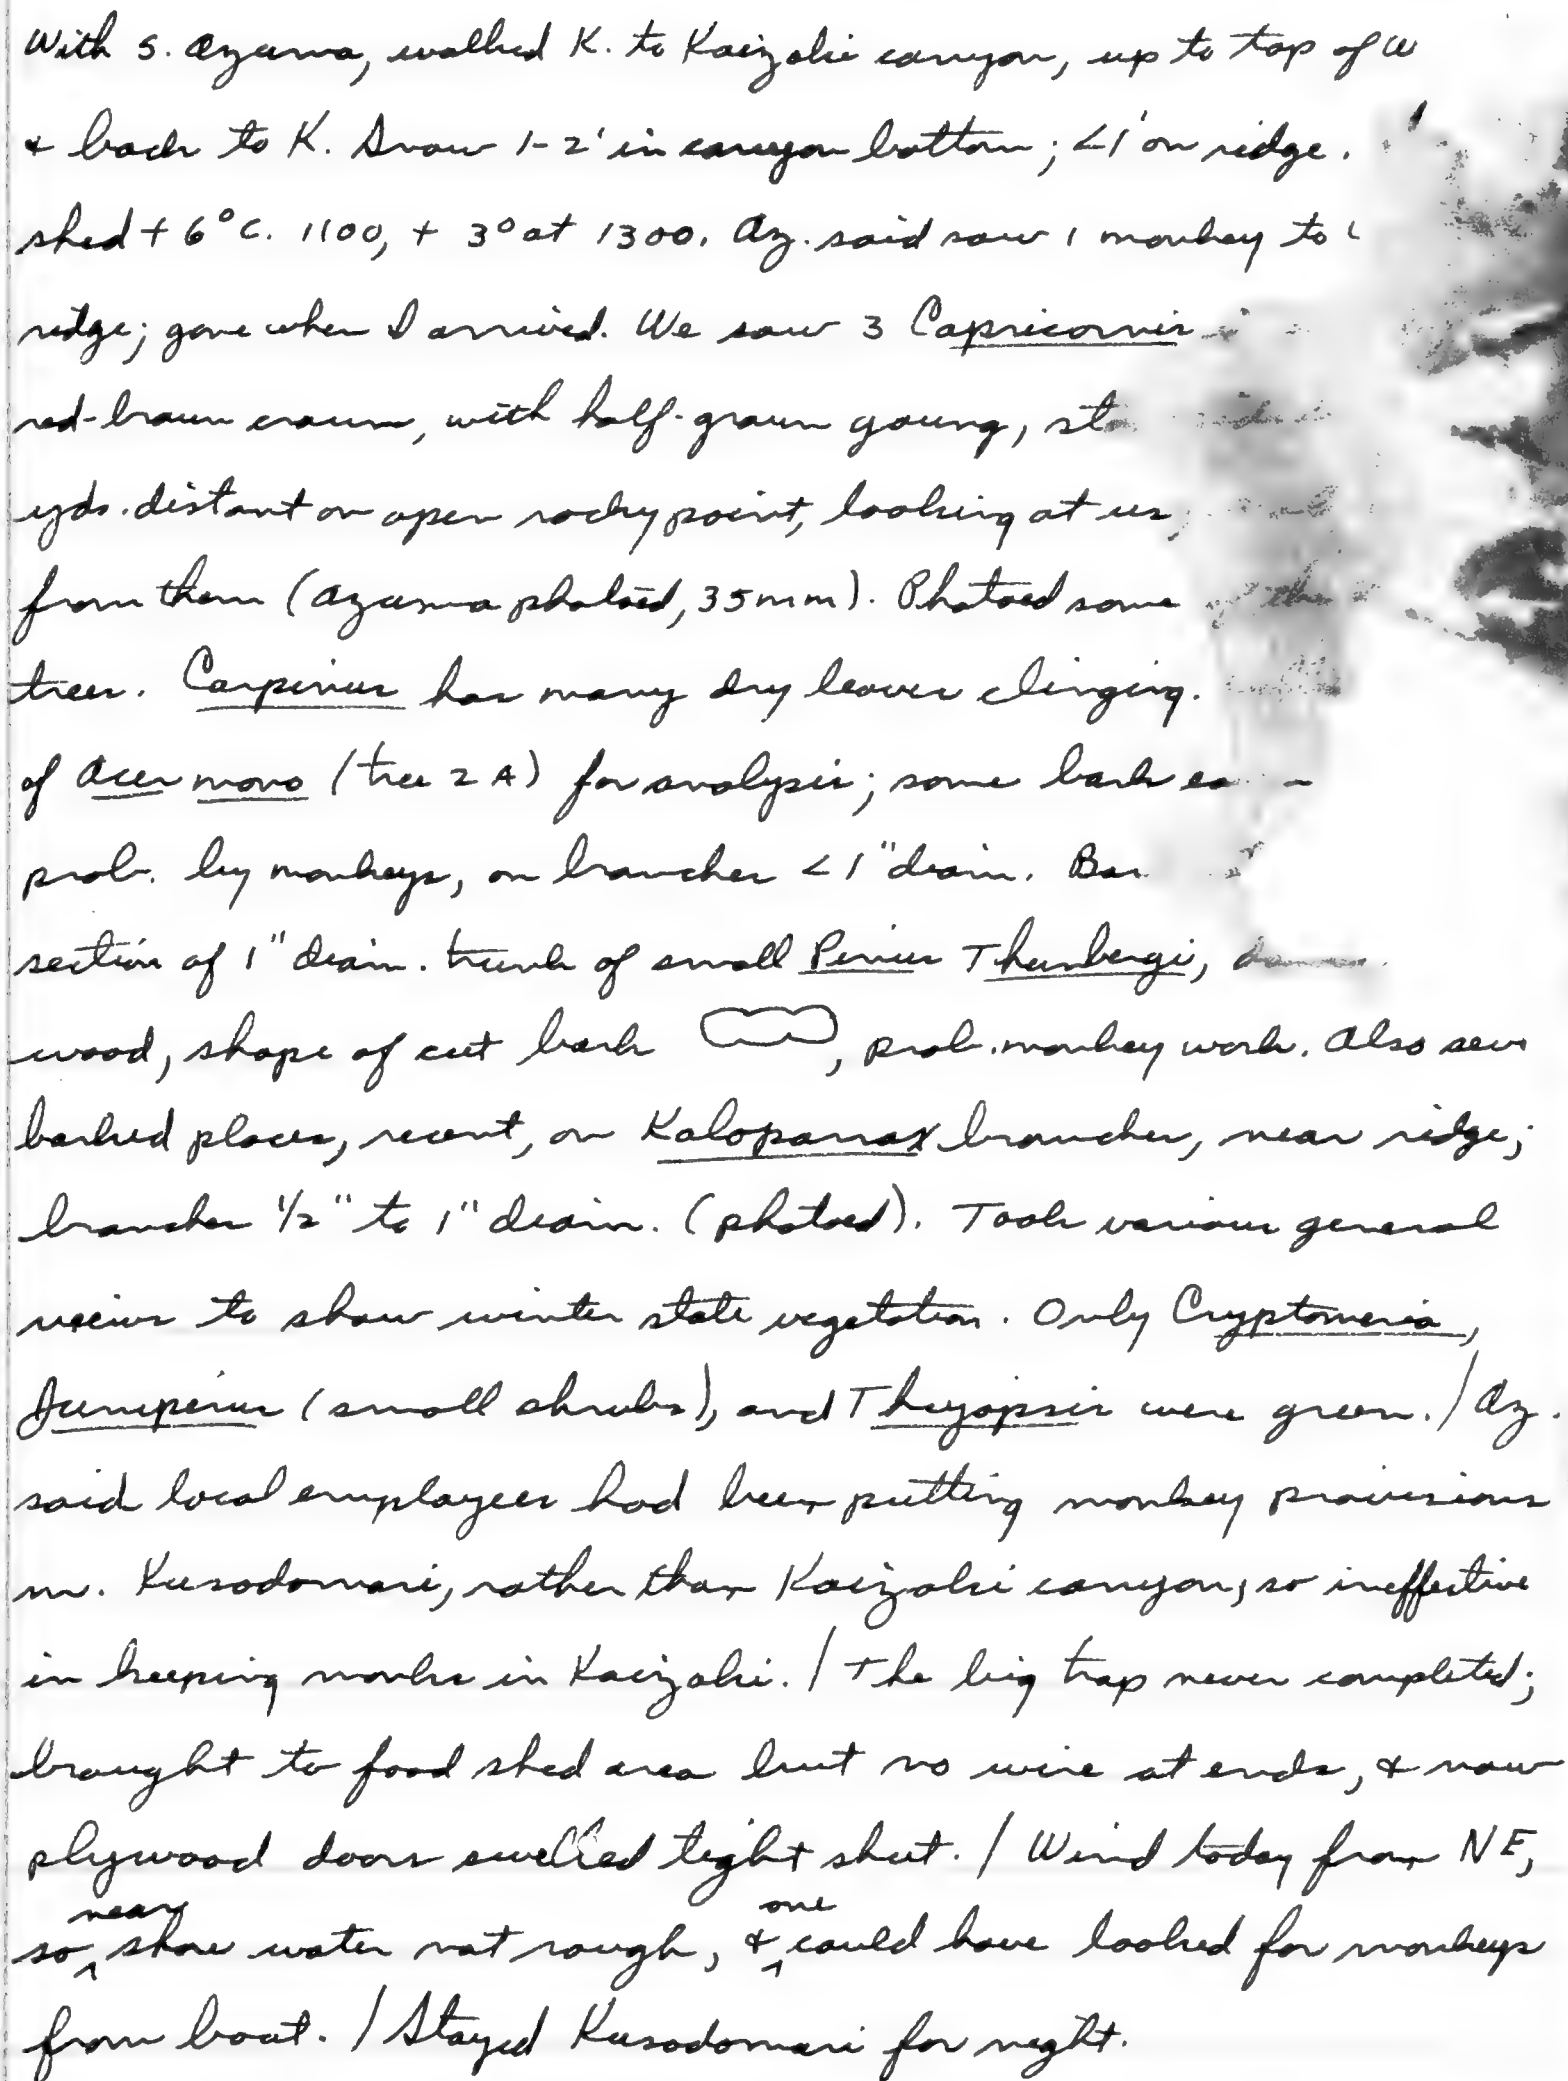 With S. Azuma, walked K. to Kaizaki canyon, up to top of
& back to K. Snow 1-2' in canyon bottom; <1' on ridge.
shed +6°C. 1100, + 3° at 1300. Az. said saw 1 monkey to
ridge; gone when I arrived. We saw 3 Capricornis
red-brown crown, with half-grown young,
yds. distant on open rocky point, looking at us,
from them (Azuma photoed, 35mm). Photoed some
trees. Carpinus has many dry leaves clinging.
of Acer mono (tree 2A) for analysis; some bark
prob. by monkeys, on branches <1" diam.
section of 1" diam. trunk of small Pinus Thunbergi,
wood, shape of cut bark , prob. monkey work. Also
barked places, recent, on Kalopanax branches, near ridge;
branches 1/2" to 1" diam. (photoed). Took various general
views to show winter state vegetation. Only Cryptomeria,
Juniperus (small shrubs), and Thujopsis were green. / Az.
said local employees had been putting monkey provisions
nr. Kusodomari, rather than Kaizaki canyon, so ineffective
in keeping monks in Kaizaki. / The big trap never completed;
brought to food shed area but no wire at ends, & now
plywood doors swelled tight shut. / Wind today from NE,
so near shore water not rough, & one could have looked for monkeys
from boat. / Stayed Kusodomari for night.